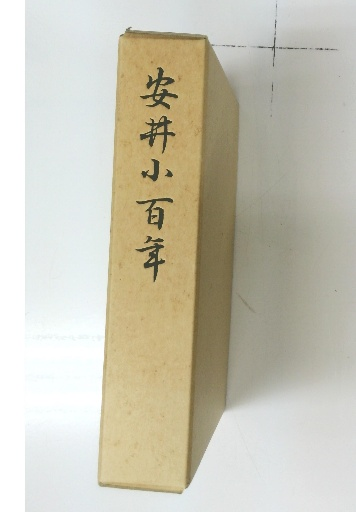 安井小百年